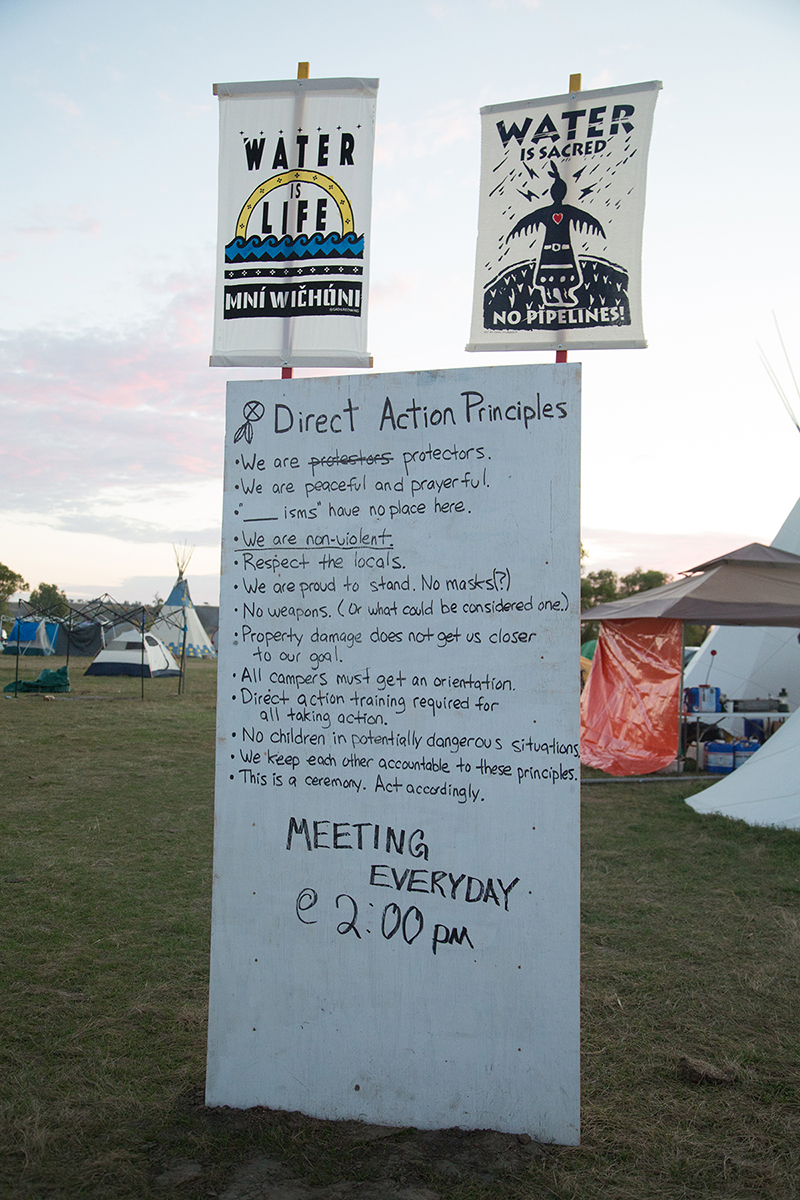 WATER
IS
LIFE
MNÍ WIČHÓNI
WATER
IS SACRED
NO PIPELINES!
Direct Action Principles
• We are ~~protestors~~ protectors.
• We are peaceful and prayerful.
• "___ isms" have no place here.
• We are non-violent.
• Respect the locals.
• We are proud to stand. No masks(?)
• No weapons. (Or what could be considered one.)
• Property damage does not get us closer
to our goal.
• All campers must get an orientation.
• Direct action training required for
all taking action.
• No children in potentially dangerous situations
• We keep each other accountable to these principles.
• This is a ceremony. Act accordingly.
MEETING
EVERYDAY
@ 2:00 pm